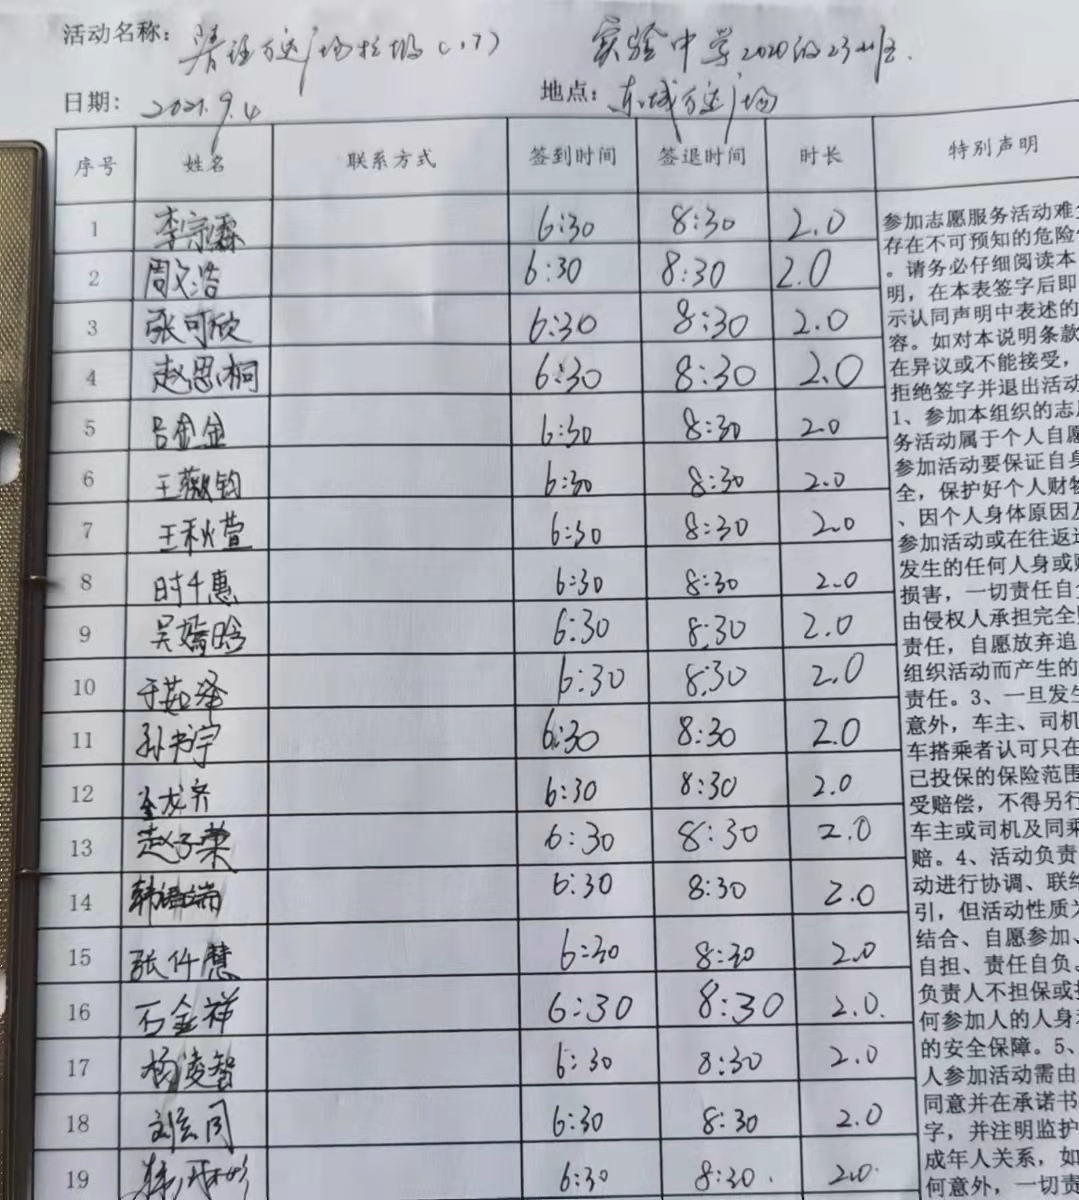 活动名称: 万达广场 实验中学2020级23班.
日期: 2021.9.4 地点: 东城万达广场
序号 姓名 联系方式 签到时间 签退时间 时长 特别声明
1 李宗霖 6:30 8:30 2.0
2 周文浩 6:30 8:30 2.0
3 张可欣 6:30 8:30 2.0
4 赵思桐 6:30 8:30 2.0
5 吕金金 6:30 8:30 2.0
6 王薇钧 6:30 8:30 2.0
7 王秋萱 6:30 8:30 2.0
8 时千惠 6:30 8:30 2.0
9 吴嫣晗 6:30 8:30 2.0
10 于茹泽 6:30 8:30 2.0
11 孙书宇 6:30 8:30 2.0
12 6:30 8:30 2.0
13 赵子荣 6:30 8:30 2.0
14 韩语端 6:30 8:30 2.0
15 张仟慧 6:30 8:30 2.0
16 石金祥 6:30 8:30 2.0.
17 杨凌智 6:30 8:30 2.0
18 刘同 6:30 8:30 2.0
19 6:30 8:30. 2.0.
参加志愿服务活动难
存在不可预知的危险
。请务必仔细阅读本
明，在本表签字后即
示认同声明中表述的
容。如对本说明条款
在异议或不能接受，
拒绝签字并退出活动
1、参加本组织的志
务活动属于个人自愿
参加活动要保证自身
全，保护好个人财物
、因个人身体原因及
参加活动或在往返
发生的任何人身或
损害，一切责任自
由侵权人承担完全
责任，自愿放弃追
组织活动而产生的
责任。3、一旦发生
意外，车主、司机
车搭乘者认可只在
已投保的保险范围
受赔偿，不得另行
车主或司机及同乘
赔。4、活动负责
动进行协调、联络
引，但活动性质为
结合、自愿参加、
自担、责任自负。
负责人不担保或
何参加人的人身
的安全保障。5、
人参加活动需由
同意并在承诺书
字，并注明监护
成年人关系，如
何意外，一切责